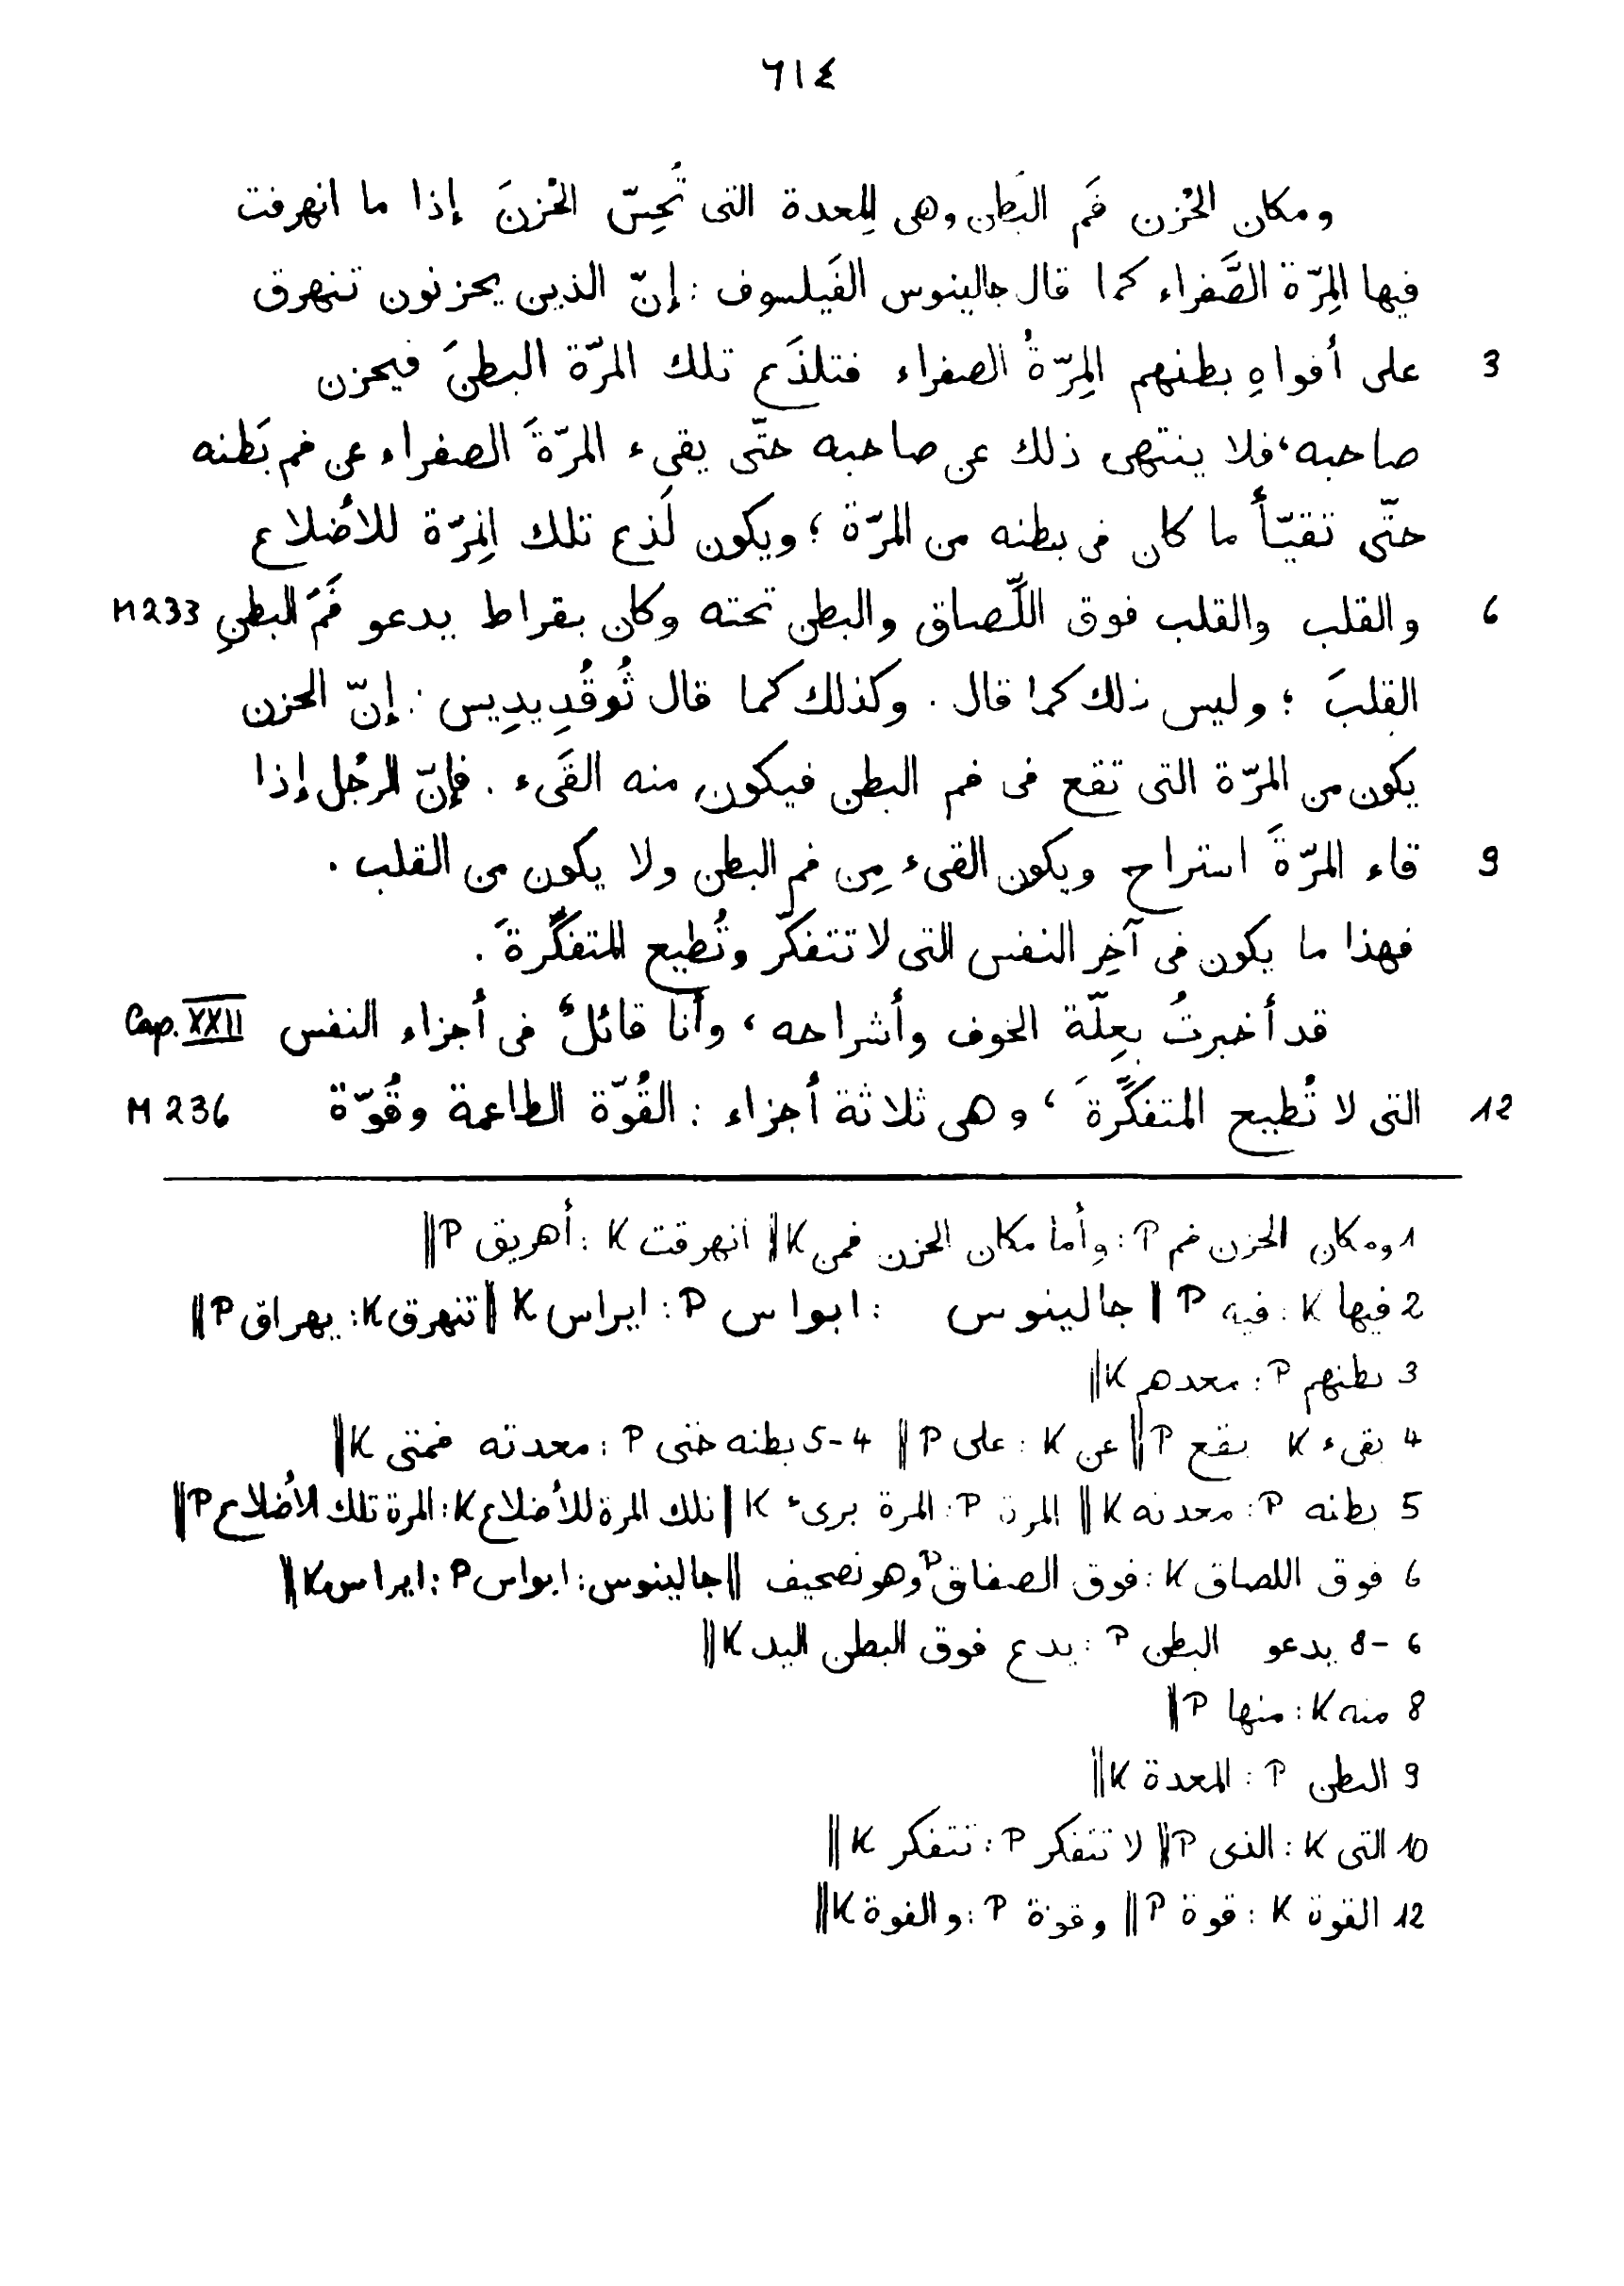 ٦١٤
ومكان الحُزن فَم البَطن وهى المعدة التى تُحِسّ الحُزنَ إذا ما انهرقت
فيها المِرّة الصَّفراء كما قال جالينوس الفَيلسوف : إنّ الذين يحزنون تنهرق
3 على أفواهِ بطنهم المِرّةُ الصفراء فتلذَع تلك المرّة البطنَ فيحزن
صاحبه، فلا ينتهى ذلك عن صاحبه حتّى يقىء المرّةَ الصفراء عن فم بَطنه
حتّى تقيّأ ما كان فى بطنه من المرّة ؛ ويكون لَذع تلك المِرّة للأضلاع
6 والقلب والقلب فوق اللَّصاق والبطن تحته وكان بقراط يدعو فَمَ البطنِ M 233
القلبَ ؛ وليس ذلك كما قال . وكذلك كما قال ثُوقُدِيدِيس : إنّ الحزن
يكون من المرّة التى تقع فى فم البطن فيكون منه القَىء . فإنّ الرجُل إذا
9 قاء المرّةَ استراح ويكون القىء مِن فم البطن ولا يكون من القلب .
فهذا ما يكون فى آخِر النفس التى لا تتفكّر وتُطيع المتفكِّرةَ .
قد أخبرتُ بِعِلّة الخوف وأشراحه ، وأنا قائلٌ فى أجزاء النفس Cap. XXII
12 التى لا تُطيع المتفكِّرةَ ، وهى ثلاثة أجزاء : القُوّة الطاعمة وقُوّة M 236
1 ومكان الحزن فم P : وأما مكان الحزن فمن K || انهرقت K : أهريق P ||
2 فيها K : فيه P || جالينوس : ابواس P : ايراس K || تنهرق K : يهراق P ||
3 بطنهم P : معدهم K ||
4 يقىء K يقع P || عن K : على P || 4-5 بطنه حتى P : معدته فمتى K ||
5 بطنه P : معدته K || المرة P : المرة برىء K || تلك المرة للأضلاع K : المرة تلك الأضلاع P ||
6 فوق اللصاق K : فوق الصفاق P وهو تصحيف || جالينوس : ابواس P : ايراس K ||
6-8 يدعو البطن P : يدع فوق البطن اليد K ||
8 منه K : منها P ||
9 البطن P : المعدة K ||
10 التى K : الذى P || لا تتفكر P : تتفكر K ||
12 القوة K : قوة P || وقوة P : والقوة K ||